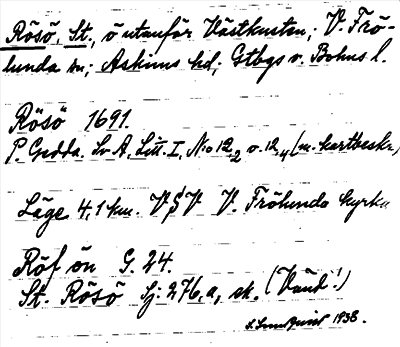 Rösö, St., ö utanför Västkusten, V. Frö-
lunda sn; Askims hd; Gtbgs o. Bohus l.
Rösö 1691.
P. Gedda. Sv. A, Litt. I, No 12₂ o. 12₄ (m. kartbeskr.)
Läge 4,1 km. VSV V. Frölunda kyrka
Röf ön G. 24.
St. Rösö Sj. 276, a, sk. (Vänd!)
1938.